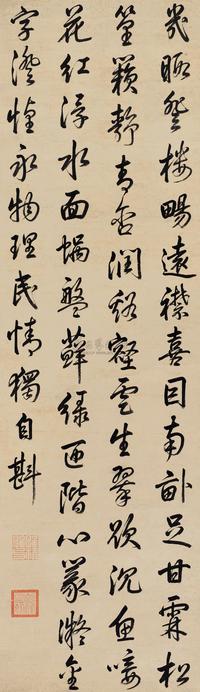 幾暇登樓暢遠襟喜因南畝足甘霖松
篁籟靜青含潤谿壑雲生翠欲沉魚唼
花紅浮水面蝸盤蘚綠匝階心篆凝金
字澄懷永物理民情獨自斟